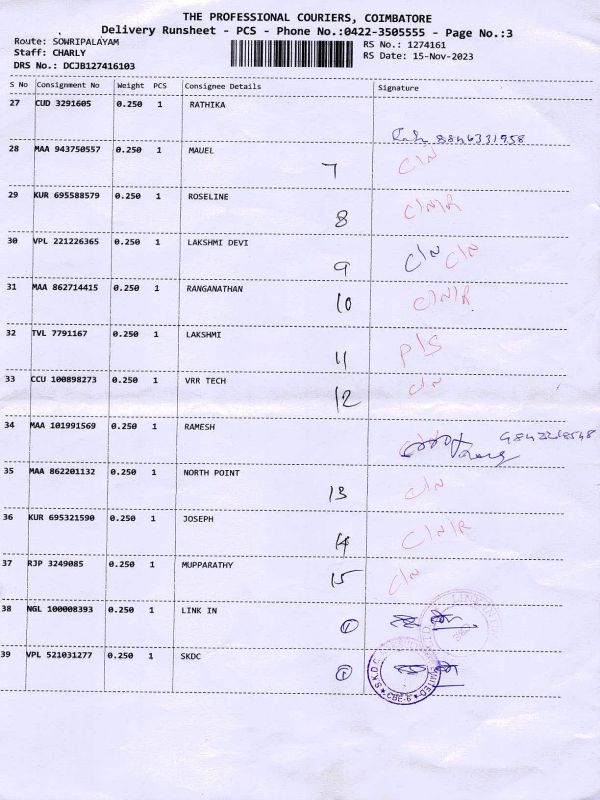 THE PROFESSIONAL COURIERS, COIMBATORE
Delivery Runsheet - PCS - Phone No.:0422-3505555 - Page No.:3
Route: SOWRIPALAYAM
Staff: CHARLY
DRS No.: DCJB127416103
RS No.: 1274161
RS Date: 15-Nov-2023
S No Consignment No Weight PCS Consignee Details Signature
27 CUD 3291605 0.250 1 RATHIKA
8846331958
28 MAA 943750557 0.250 1 MAUEL
7 C/N
29 KUR 695588579 0.250 1 ROSELINE
8 C/N/R
30 VPL 221226365 0.250 1 LAKSHMI DEVI
9 C/N C/N
31 MAA 862714415 0.250 1 RANGANATHAN
10 C/N/R
32 TVL 7791167 0.250 1 LAKSHMI
11 P/S
33 CCU 100898273 0.250 1 VRR TECH
12 C/N
34 MAA 101991569 0.250 1 RAMESH
35 MAA 862201132 0.250 1 NORTH POINT
13 C/N
36 KUR 695321590 0.250 1 JOSEPH
14 C/N/R
37 RJP 3249085 0.250 1 MUPPARATHY
15 C/N
38 NGL 100008393 0.250 1 LINK IN
1
39 VPL 521031277 0.250 1 SKDC
1
CBE-6